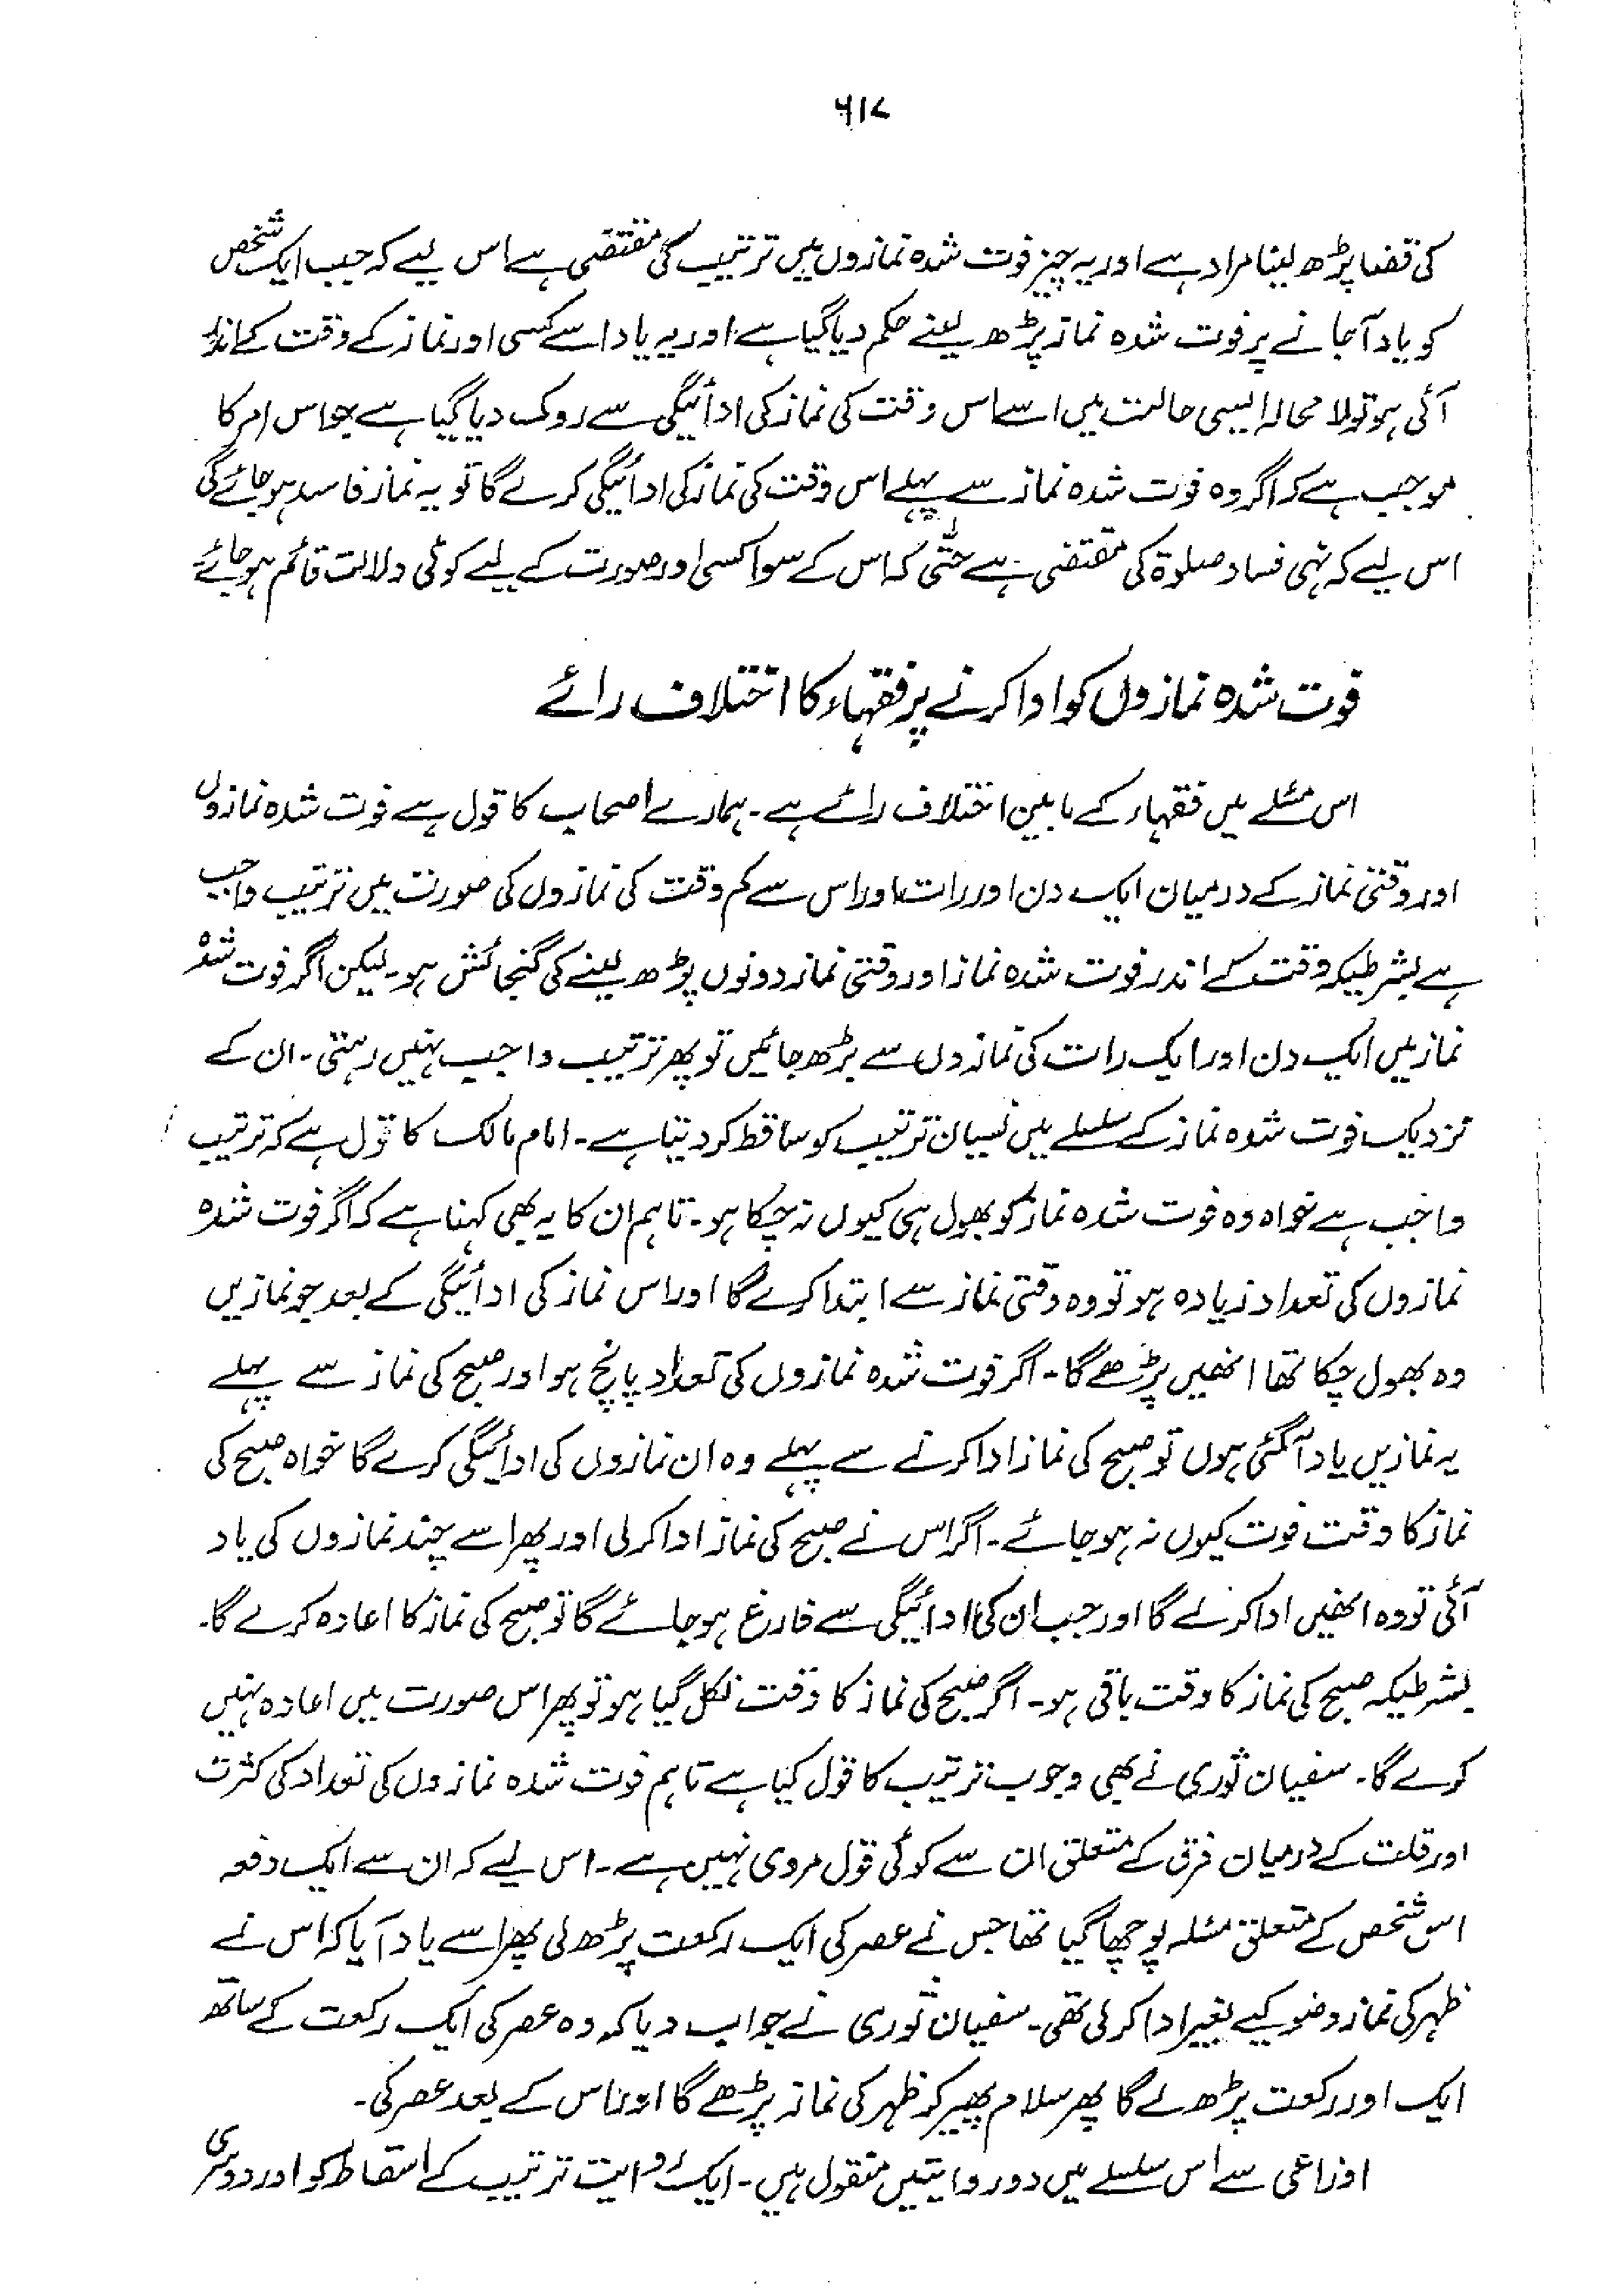 ۶۱۷
کی قضا پڑھ لینا مراد ہے اور یہ چیز فوت شدہ نمازوں میں ترتیب کی مقتضی ہے اس لیے کہ جب ایک شخص
کو یاد آجانے پر فوت شدہ نماز پڑھ لینے حکم دیا گیا ہے اور یہ یاد اسے کسی اور نماز کے وقت کے اندر
آئی ہو تو لا محالہ ایسی حالت میں اسے اس وقت کی نماز کی ادائیگی سے روک دیا گیا ہے جو اس امر کا
موجب ہے کہ اگر وہ فوت شدہ نماز سے پہلے اس وقت کی نماز کی ادائیگی کرے گا تو یہ نماز فاسد ہو جائے گی
اس لیے کہ نہی فساد صلوٰۃ کی مقتضی ہے حتّٰی کہ اس کے سوا کسی اور صورت کے لیے کوئی دلالت قائم ہو جائے۔
فوت شدہ نمازوں کو ادا کرنے پر فقہاء کا اختلاف رائے
اس مسئلے میں فقہاء کے مابین اختلاف رائے ہے۔ ہمارے اصحاب کا قول ہے فوت شدہ نمازوں
اور وقتی نماز کے درمیان ایک دن اور رات اور اس سے کم وقت کی نمازوں کی صورت میں ترتیب واجب
ہے بشرطیکہ وقت کے اندر فوت شدہ نماز اور وقتی نماز دونوں پڑھ لینے کی گنجائش ہو۔ لیکن اگر فوت شدہ
نمازیں ایک دن اور ایک رات کی نمازوں سے بڑھ جائیں تو پھر ترتیب واجب نہیں رہتی۔ ان کے
نزدیک فوت شدہ نماز کے سلسلے میں نسیان ترتیب کو ساقط کر دیتا ہے۔ امام مالک کا قول ہے کہ ترتیب
واجب ہے خواہ وہ فوت شدہ نماز کو بھول ہی کیوں نہ چکا ہو۔ تاہم ان کا یہ بھی کہنا ہے کہ اگر فوت شدہ
نمازوں کی تعداد زیادہ ہو تو وہ وقتی نماز سے ابتدا کرے گا اور اس نماز کی ادائیگی کے بعد جو نمازیں
وہ بھول چکا تھا انھیں پڑھے گا۔ اگر فوت شدہ نمازوں کی تعداد پانچ ہو اور صبح کی نماز سے پہلے
یہ نمازیں یاد آگئی ہوں تو صبح کی نماز ادا کرنے سے پہلے وہ ان نمازوں کی ادائیگی کرے گا خواہ صبح کی
نماز کا وقت فوت کیوں نہ ہو جائے۔ اگر اس نے صبح کی نماز ادا کر لی اور پھر اسے چند نمازوں کی یاد
آئی تو وہ انھیں ادا کرلے گا اور جب ان کی ادائیگی سے فارغ ہو جائے گا تو صبح کی نماز کا اعادہ کرے گا۔
بشرطیکہ صبح کی نماز کا وقت باقی ہو۔ اگر صبح کی نماز کا وقت نکل گیا ہو تو پھر اس صورت میں اعادہ نہیں
کرے گا۔ سفیان ثوری نے بھی وجوب ترتیب کا قول کیا ہے تاہم فوت شدہ نمازوں کی تعداد کی کثرت
اور قلت کے درمیان فرق کے متعلق ان سے کوئی قول مروی نہیں ہے۔ اس لیے کہ ان سے ایک دفعہ
اس شخص کے متعلق مسئلہ پوچھا گیا تھا جس نے عصر کی ایک رکعت پڑھ لی پھر اسے یاد آیا کہ اس نے
ظہر کی نماز وضو کیے بغیر ادا کر لی تھی۔ سفیان ثوری نے جواب دیا کہ وہ عصر کی ایک رکعت کے ساتھ
ایک اور رکعت پڑھ لے گا پھر سلام پھیر کر ظہر کی نماز پڑھے گا اور اس کے بعد عصر کی۔
اوزاعی سے اس سلسلے میں دو روایتیں منقول ہیں۔ ایک روایت ترتیب کے اسقاط کو اور دوسری